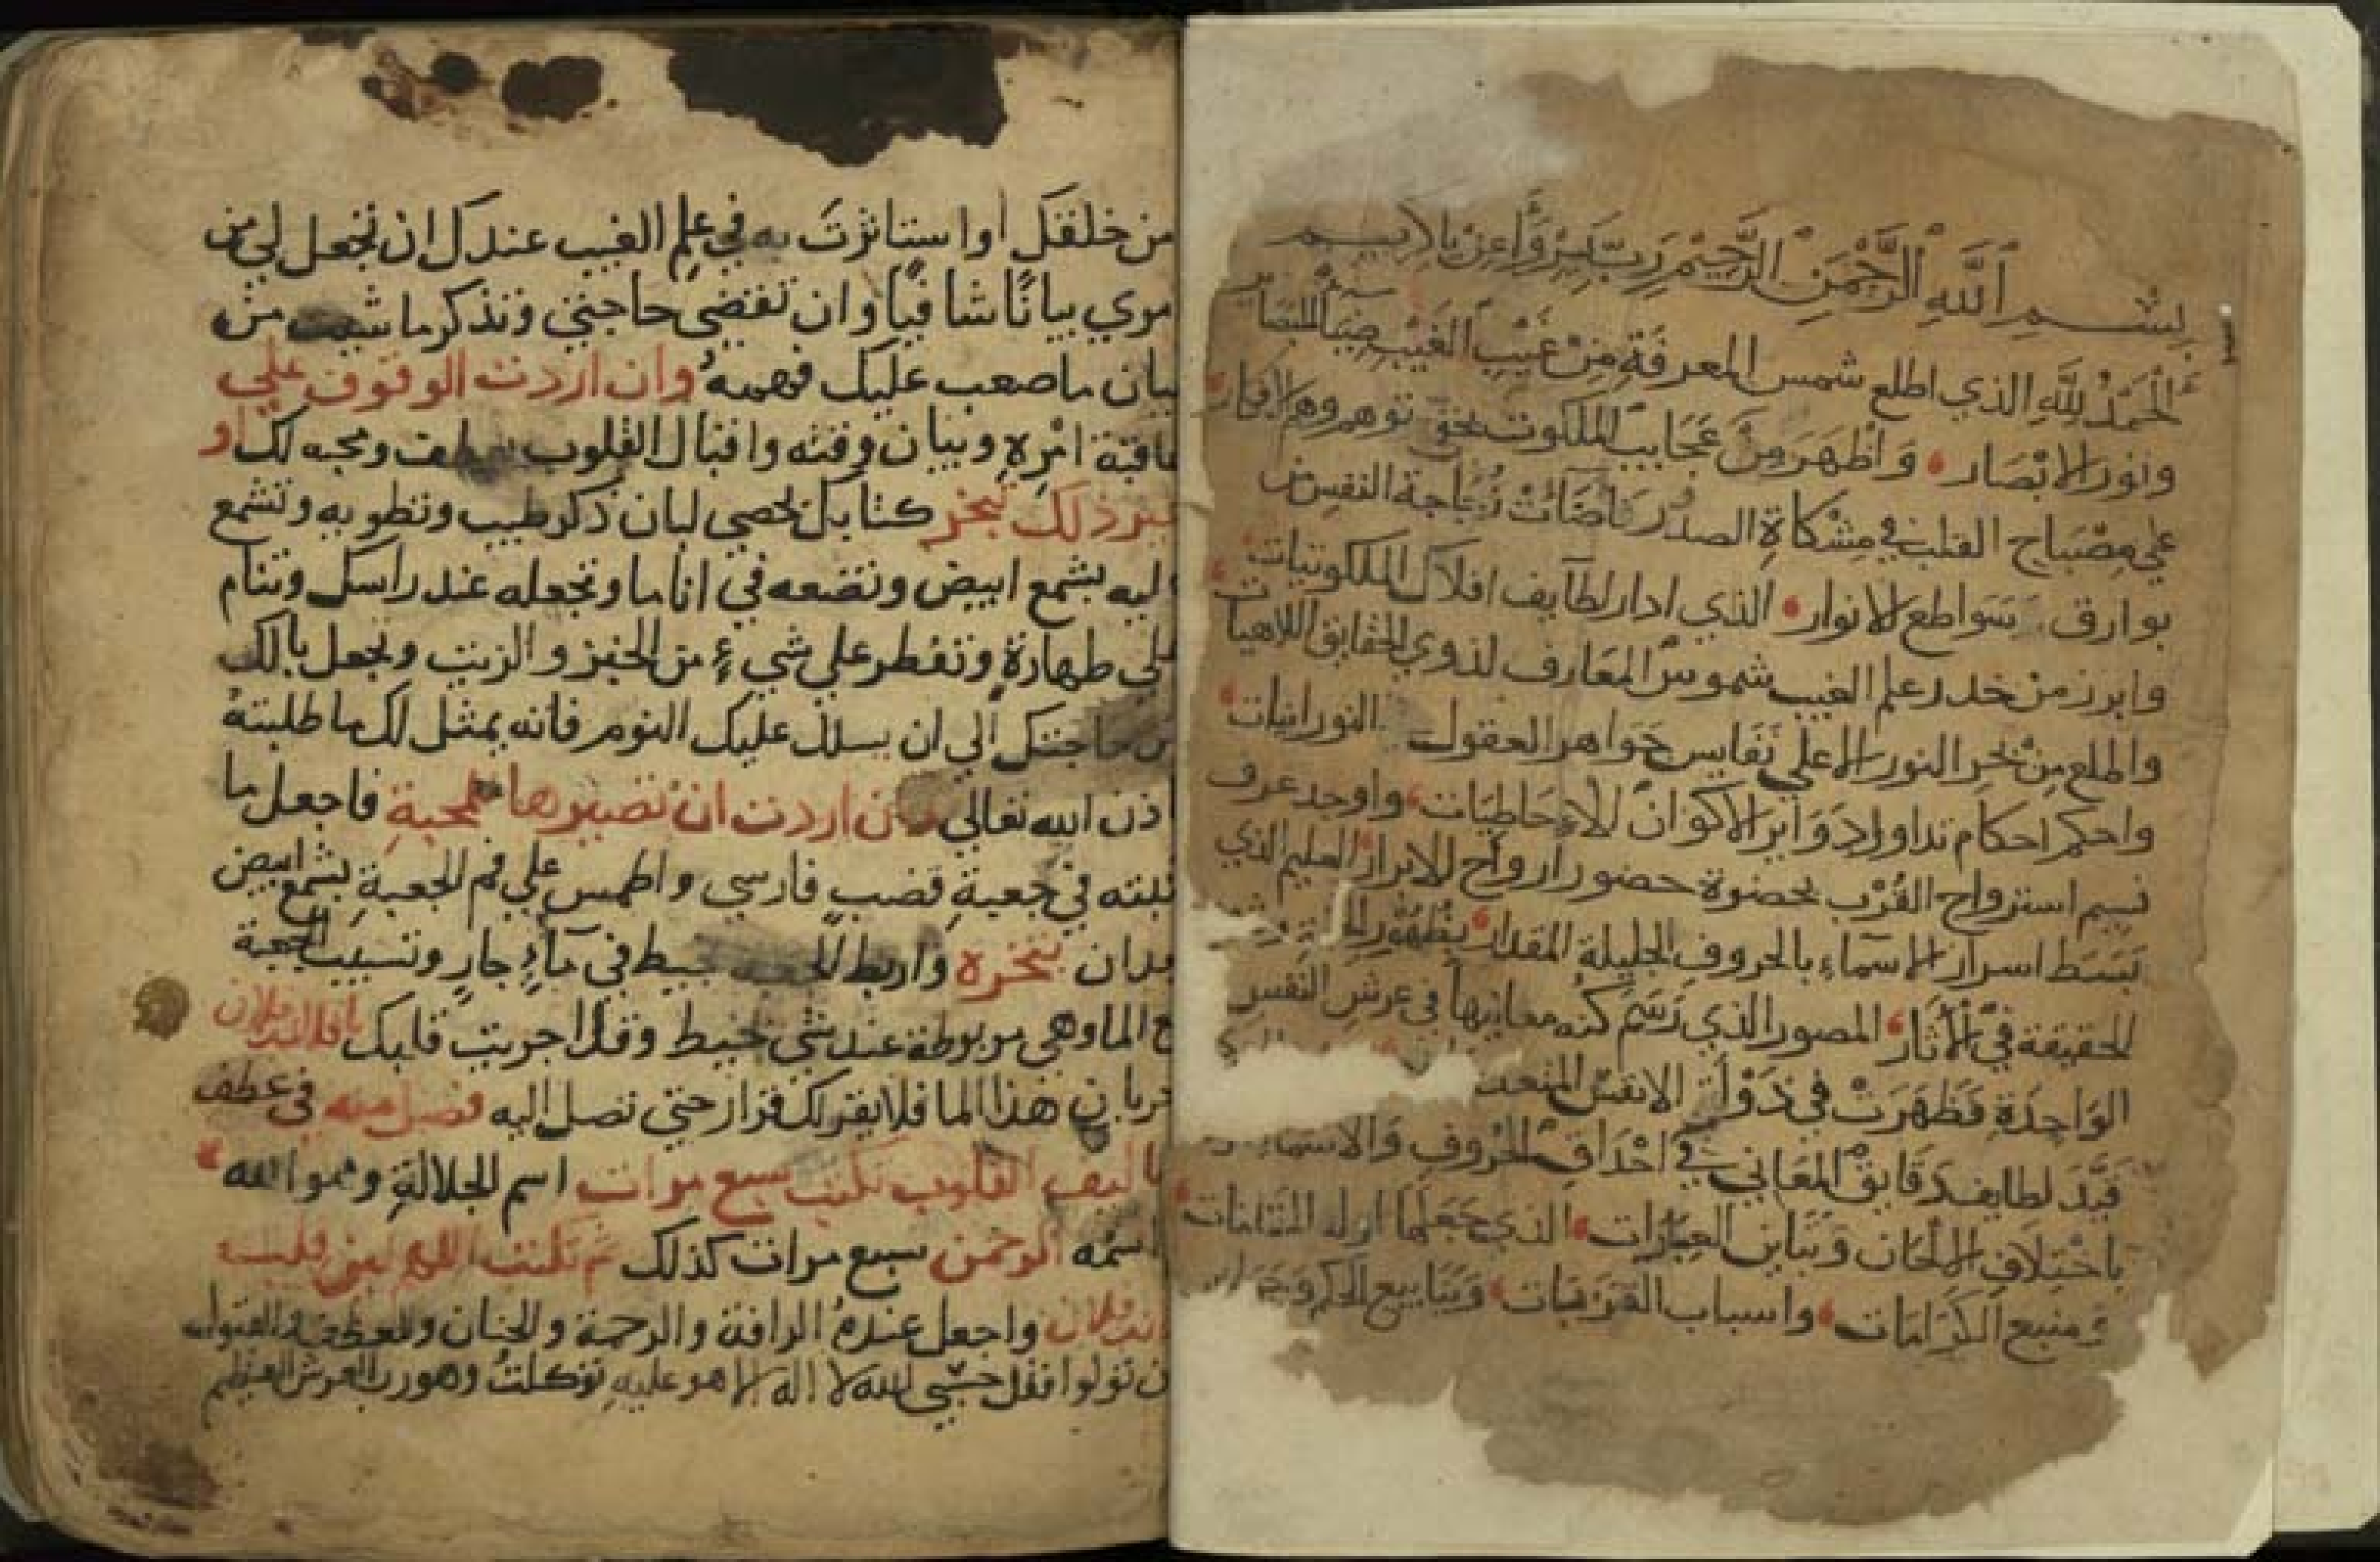 بِسْمِ اللَّهِ الرَّحْمَنِ الرَّحِيمِ رَبِّ يَسِّرْ وَأَعِنْ يا كريم
الْحَمْدُ لِلَّهِ الذي اطلع شمس المعرفةِ مِنْ غَيْبِ الغَيْبِ
ونور الابْصَار وَاَظْهَرَ مِنْ عَجَايب الملكوت توهم وهم الافكار
علي مِصْبَاح القلب في مِشْكاةِ الصدْر فَاضَاَتْ زُجَاجة النفس من
بوارق سَوَاطع الانوار الذي ادار لطآيف افلاك الملكوتيات
وابرز من خدر علم الغيب شموس المعَارف لذوي الحقايق اللاهيات
واطلع مِنْ بَحر النور الاعلي نَفَايس جَواهر العقول النورانيات
واحكم احكام تداور ادَوَآير الاكوان الاحَاطيَات واوجد عرف
نسيم استرواح القُرْب بحضوة حضور ارواح الابرار العليم الذي
بَسَط اسرار الاسماء بالحروف الجليلة المقدار بِظُهُور
الحقيقة في الاثَار المصور الذي رَسَم كنْه معانيها في عرش النفس
الوَاحِدَةِ فَظَهَرَتْ في ذَوات الانفس
قَيَّدَ لطايف دَقَايق المَعَاني في احْدَاق الحُروفِ وَالاسْمَآء
باخْتِلافِ الالحَان وَتَبَاين العِبَارَات الذي جَعَلَها
وَمنبع الكَرَامَات واسباب القرَبَات وَيَنَابيع الحكم
من خلقك او استاثرتَ به في عِلم الغيب عندك ان تجعل لي من
مري بيانًا شافيًا وان تقضي حاجتي وتذكر ما شيت من
بيان ما صعب عليك فهمهُ وان اردت الوقوف علي
عاقبة امْرِهِ وبيان وقته واقبال القلوب ومحبه لك او
غير ذلك تبخر كتابك بحصي لبان ذكر طيب وتطويه وتشمع
عليه بشمع ابيض وتضعه في انا ما وتجعله عند راسك وتنام
علي طهارة وتفطر علي شيءٍ من الخبز والزيت وتجعل بالك
من حاجتك الي ان يسلك عليك النوم فانه يمثل لك ما طلبتهُ
باذن الله تعالي وان اردت ان تصيرها لمحبةِ فاجعل ما
كتبته في جَعبةِ قصب فارسي واطمس علي فم الجعبةِ بشمع ابيض
بعدان تبخره واربط الجعبه بخيط في مآءٍ جارٍ وتسيب الجعبة
مع الما وهي مربوطة عندك في خيط وقد اجريت قلبك يا فلان بن فلان
جريان هذا الما فلا يقر لك قرار حتي تصل اليه فصل منه في عطف
تاليف القلوب تكتب سبع مرات اسم الجلالةِ وهو الله
اسمُه الرحمن سبع مرات كذلك ثم تكتب اللهم لين قلب
فلان واجعل عندهُ الرافة والرحمة والحنان والعطف والقبول
فان تولوا فقل حَسْبي الله لا اله الا هو عليهِ توكلتُ وهو رب العرش العظيم